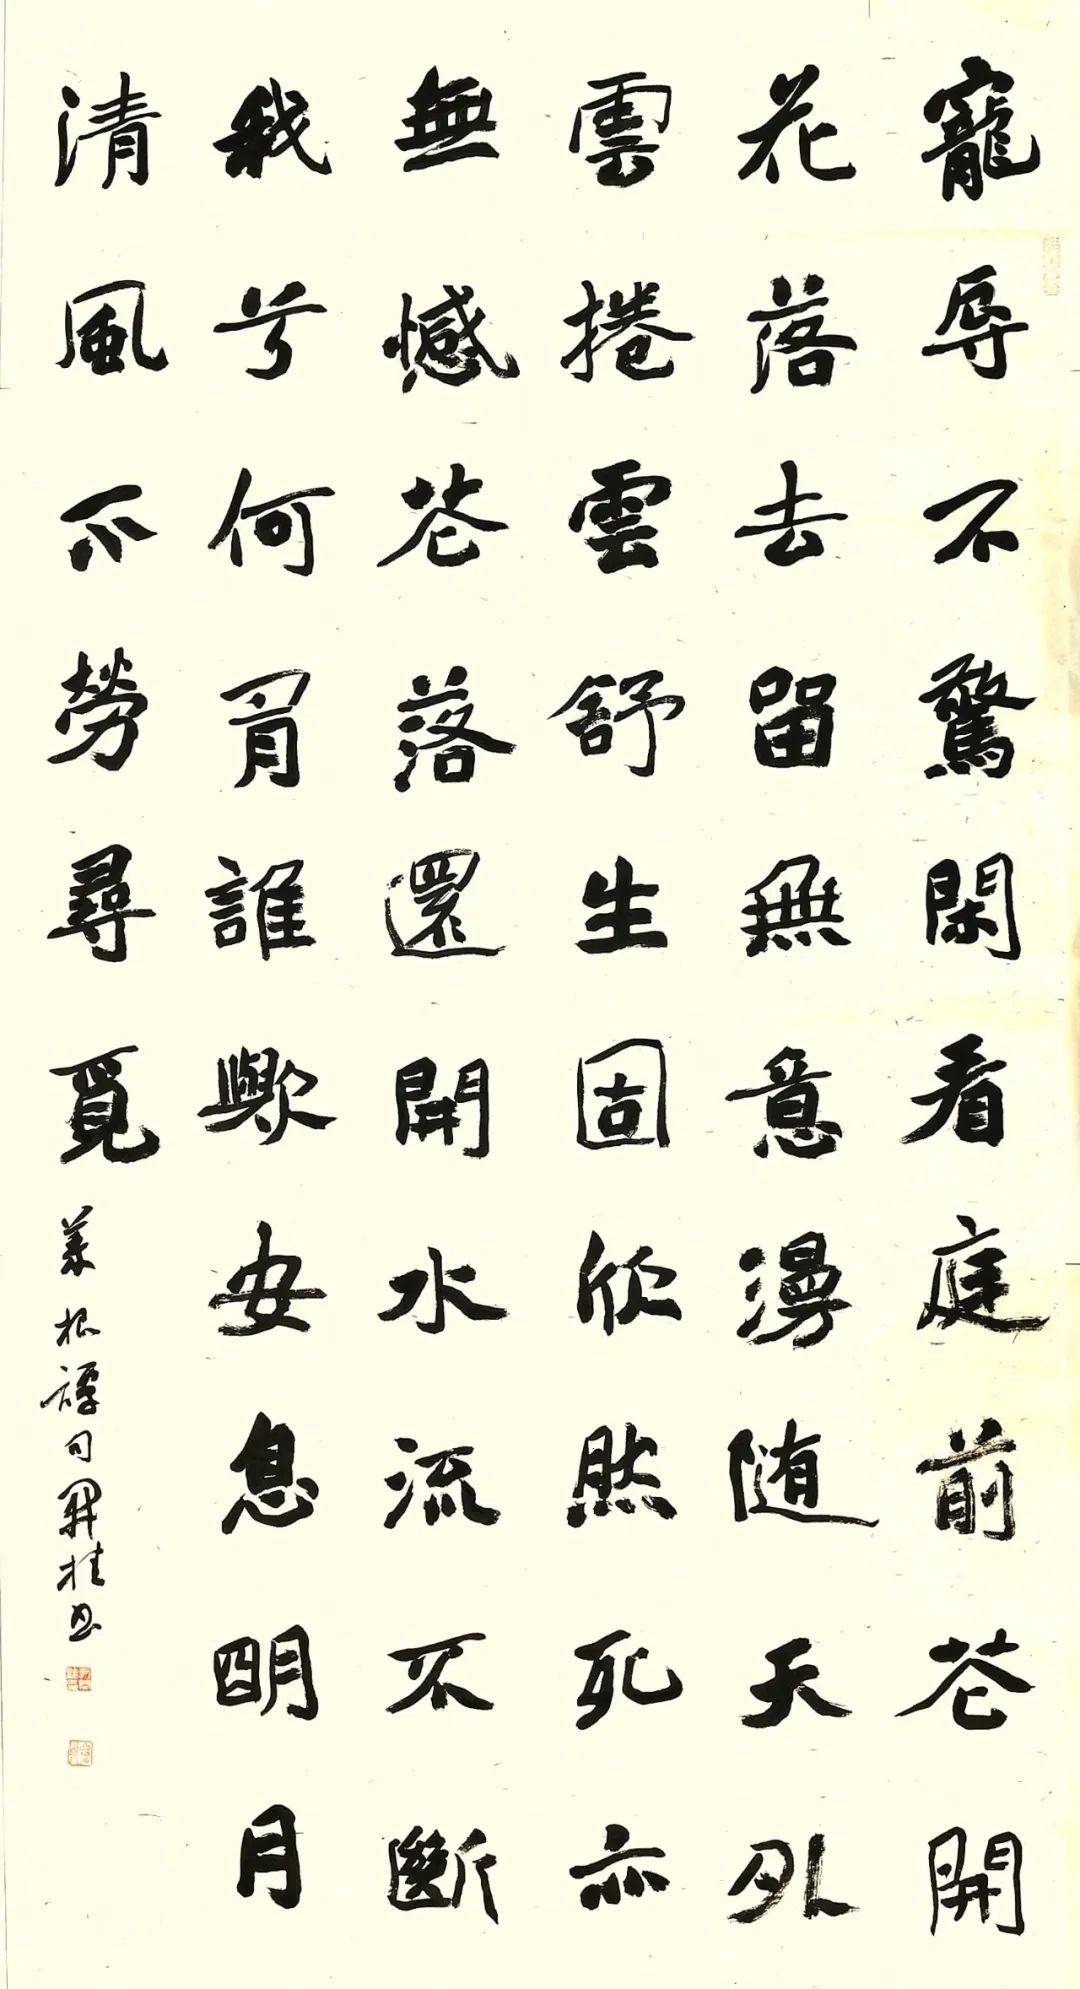 寵辱不驚閑看庭前花開
花落去留無意漫随天外
雲捲雲舒生固欣然死亦
無憾花落還開水流不斷
我兮何有誰歟安息明月
清風不勞尋覓
菜根譚句開桂書